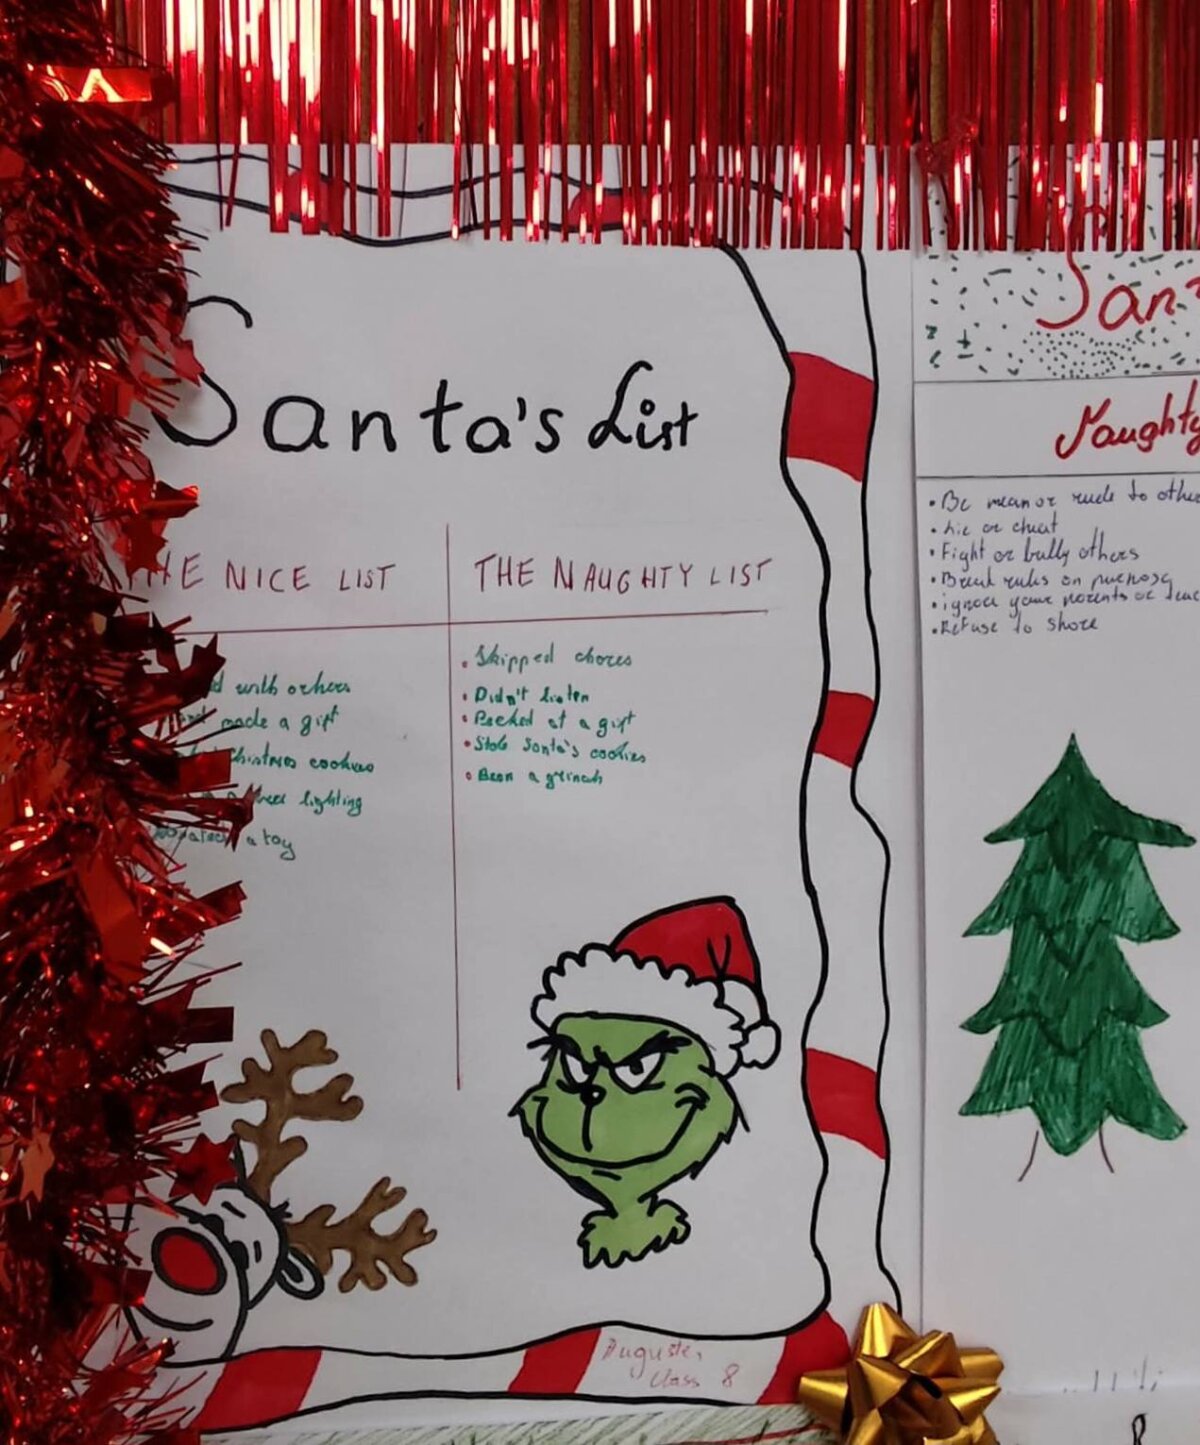 Santa's List
THE NICE LIST
with others
made a gift
Christmas cookies
tree lighting
a toy
THE NAUGHTY LIST
• Skipped chores
• Didn't listen
• Peeked at a gift
• Stole Santa's cookies
• Been a grinch
Auguste,
Class 8
San
Naughty
• Be mean or rude to othe
• Lie or cheat
• Fight or bully others
• Break rules on
• ignor your parents or
• Refuse to share